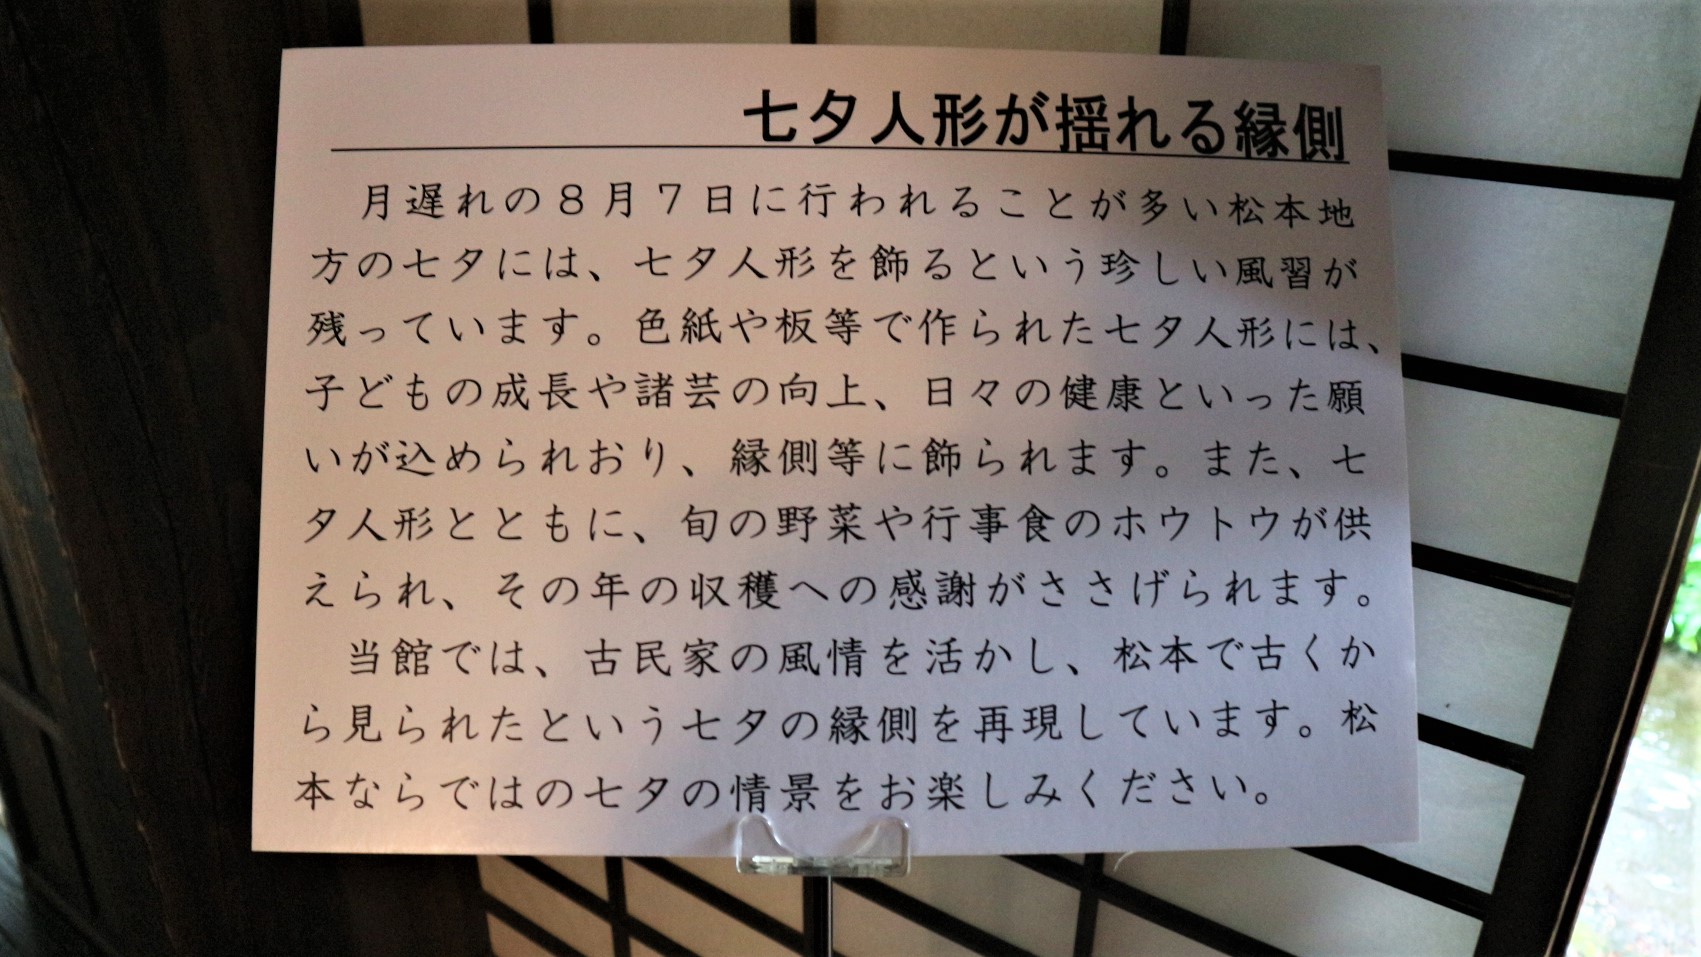 七夕人形が揺れる縁側
　月遅れの８月７日に行われることが多い松本地
方の七夕には、七夕人形を飾るという珍しい風習が
残っています。色紙や板等で作られた七夕人形には、
子どもの成長や諸芸の向上、日々の健康といった願
いが込められおり、縁側等に飾られます。また、七
夕人形とともに、旬の野菜や行事食のホウトウが供
えられ、その年の収穫への感謝がささげられます。
　当館では、古民家の風情を活かし、松本で古くか
ら見られたという七夕の縁側を再現しています。松
本ならではの七夕の情景をお楽しみください。